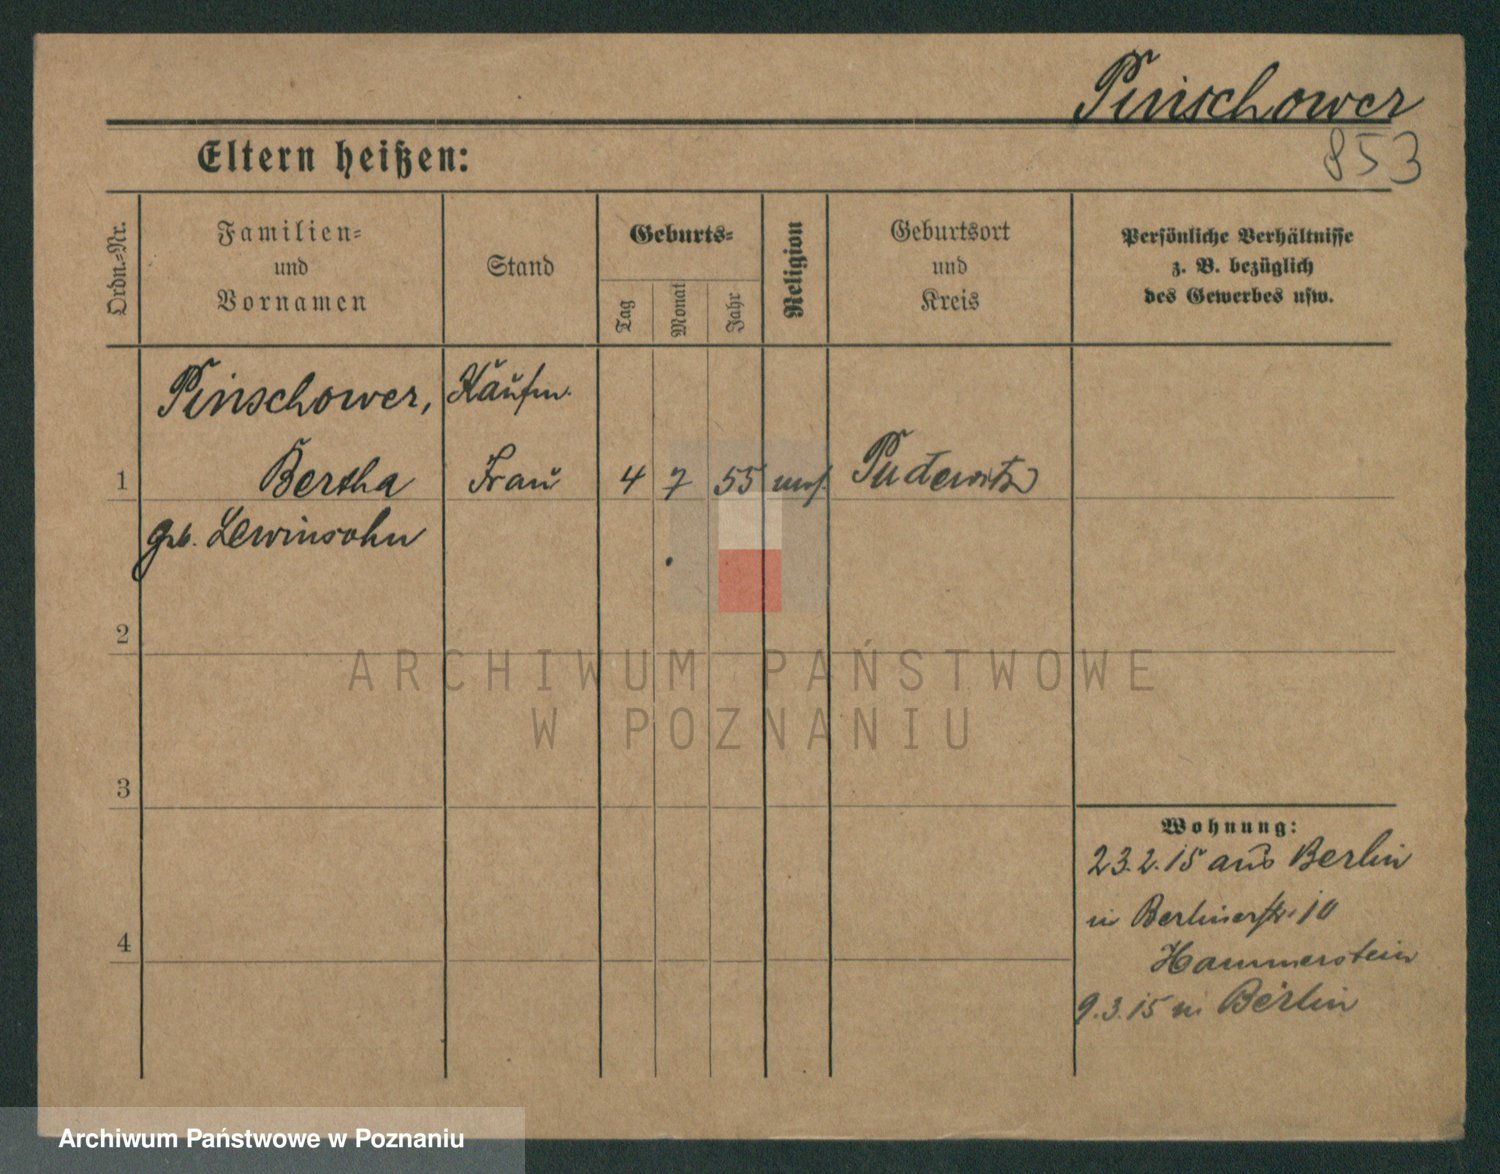 Pinschower
853
Eltern heißen:
Ordn.-Nr.
Familien-
und
Vornamen
Stand
Geburts-
Tag
Monat
Jahr
Religion
Geburtsort
und
Kreis
Persönliche Verhältnisse
z. B. bezüglich
des Gewerbes usw.
Pinschower, Kaufm.
1 Bertha Frau 4 7 55 mos. Pudewitz
geb. Lewinsohn
2
3
4
Wohnung:
23.2.15 aus Berlin
in Berlinerstr. 10
Hammerstein
9.3.15 n. Berlin
ARCHIWUM PAŃSTWOWE
W POZNANIU
Archiwum Państwowe w Poznaniu